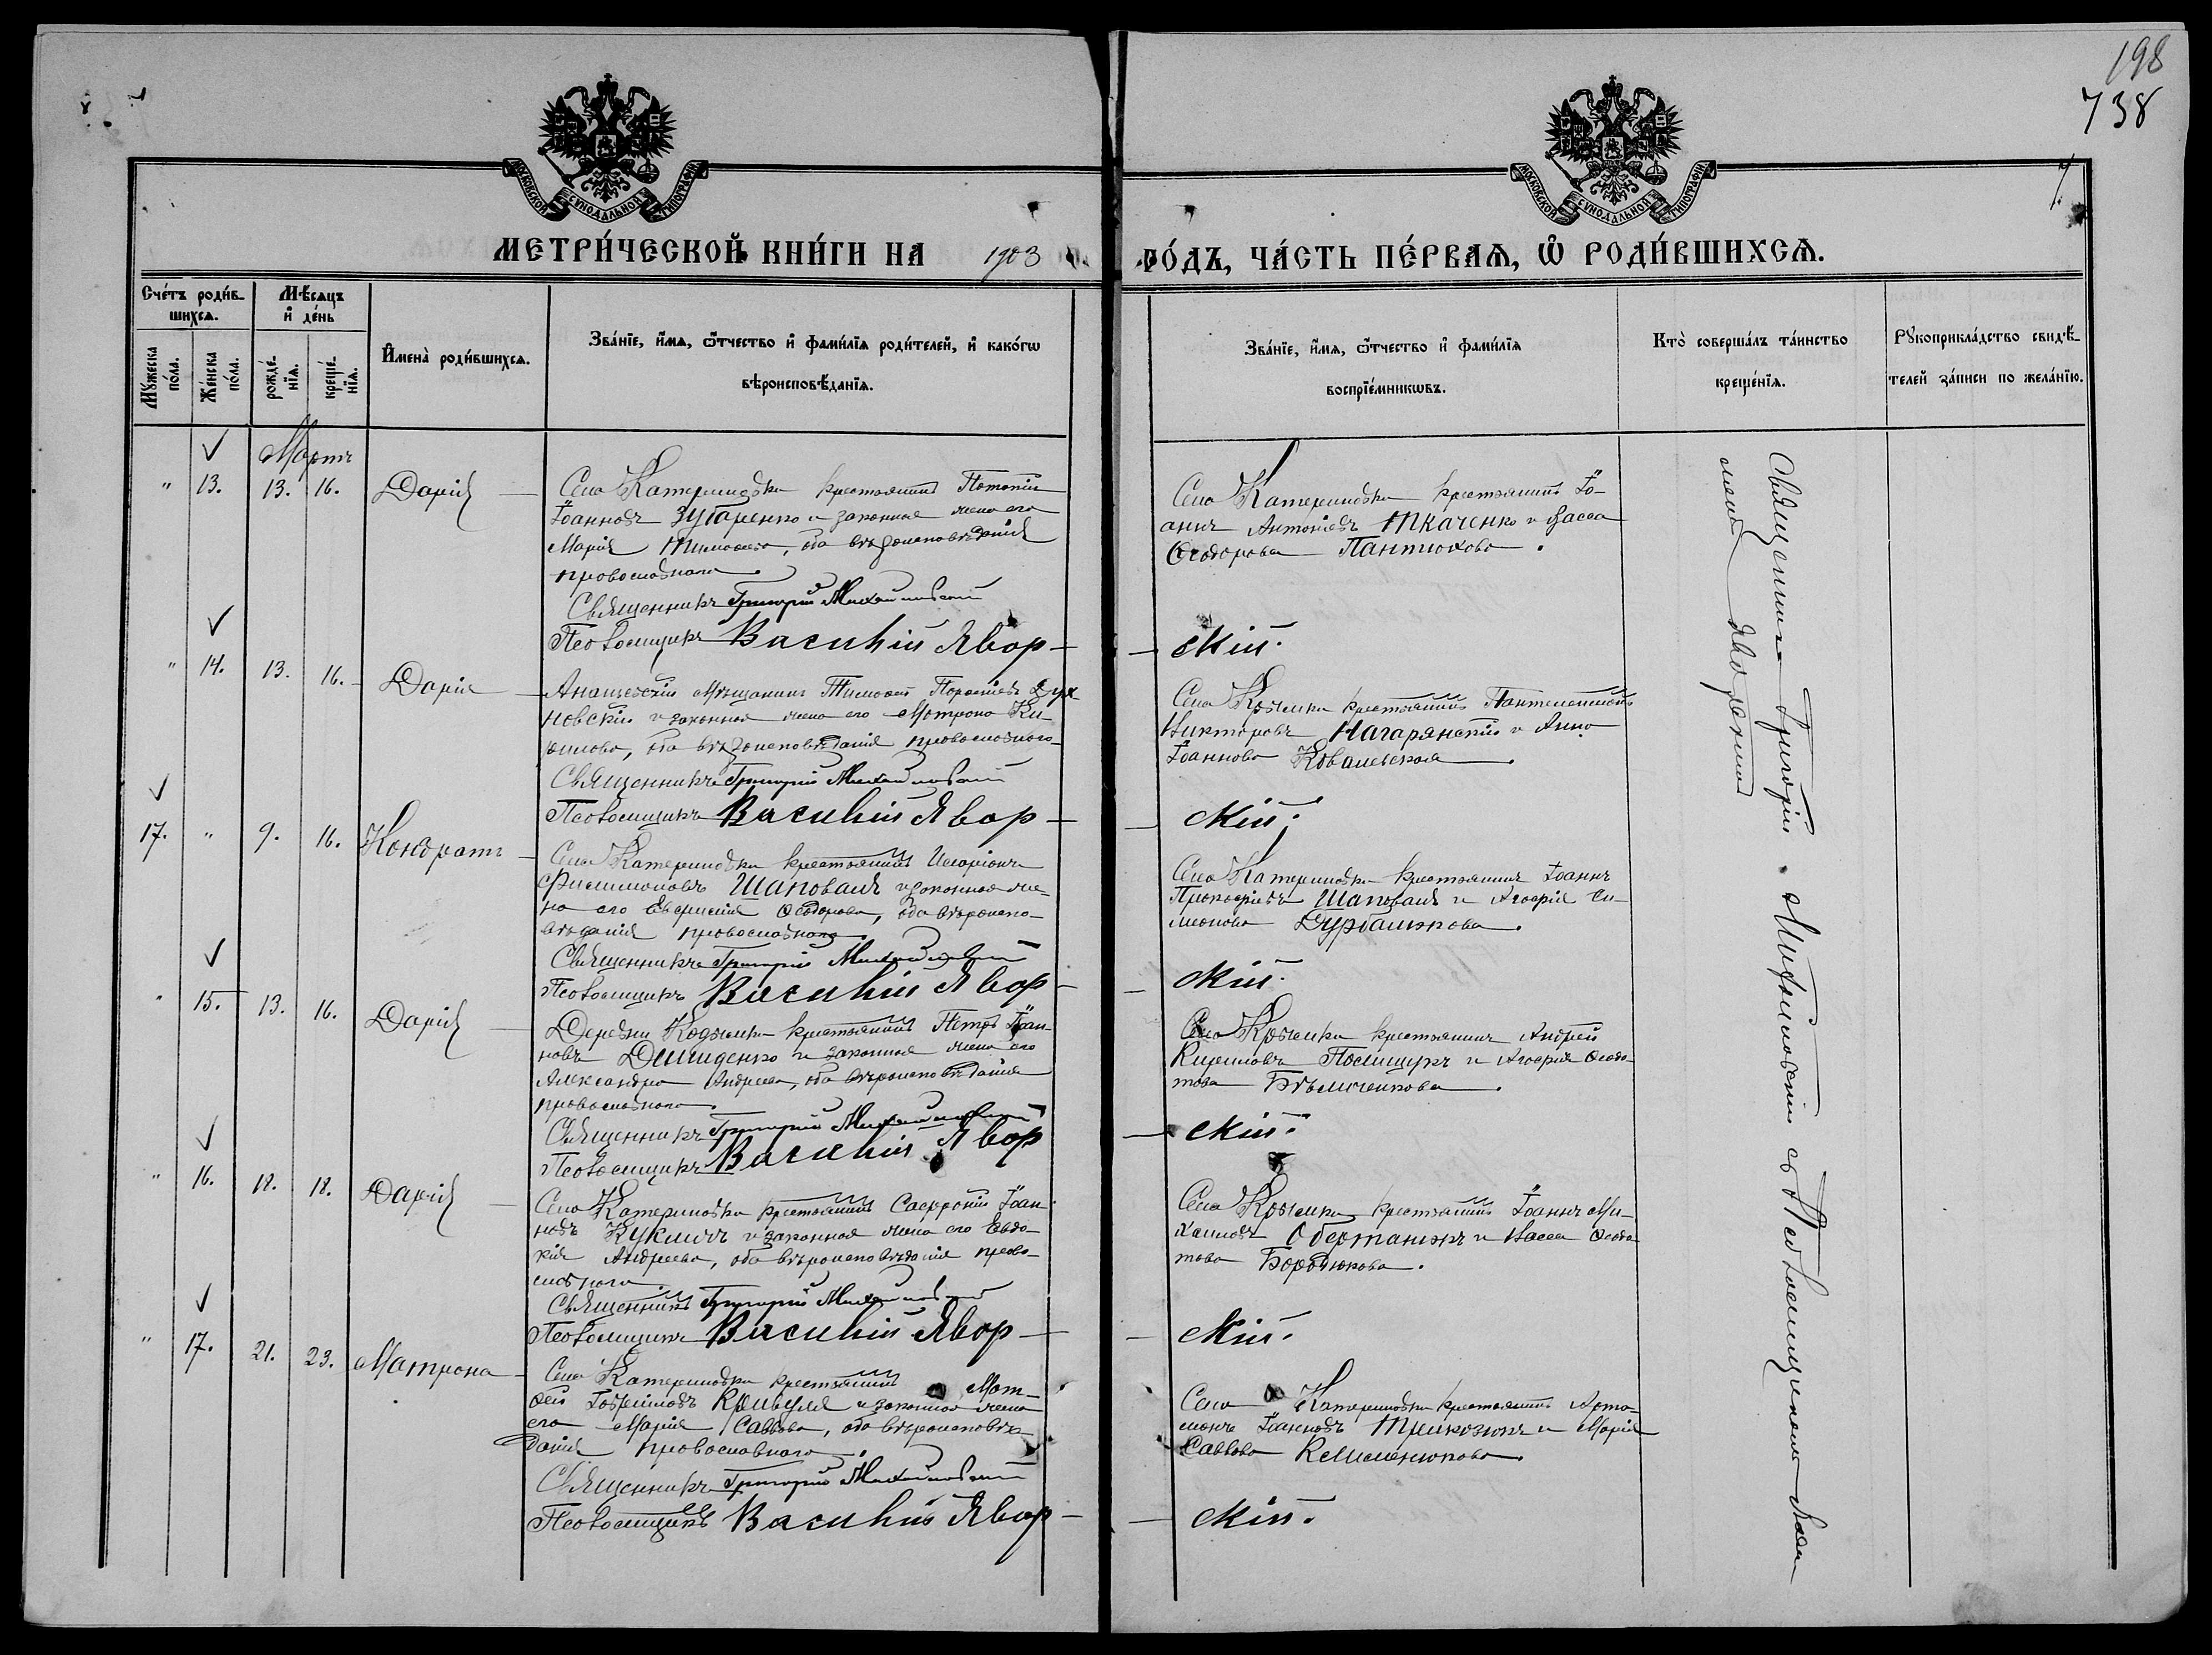 198
738
7
МОСКОВСКОЙ СѴНОДАЛЬНОЙ ТИПОГРАФІИ
МОСКОВСКОЙ СѴНОДАЛЬНОЙ ТИПОГРАФІИ
МЕТРИ́ЧЕСКОЙ КНИ́ГИ НА 1903 ГО́ДЪ, ЧА́СТЬ ПЕ́РВАЯ, Ѽ РОДИ́ВШИХСЯ.
Сче́тъ роди́в-
шихся.
Мѣ́сяцъ
и҆ де́нь
Му́жеска по́ла.
Же́нска по́ла.
рожде́-нїѧ.
креще́-нїѧ.
И҆мена̀ роди́вшихся.
Зва́нїе, и҆́мѧ, ѻ҆́тчество и҆ фами́лїѧ роди́телей, и҆ како́гѡ
вѣроисповѣ́данїѧ.
Зва́нїе, и҆́мѧ, ѻ҆́тчество и҆ фами́лїѧ
воспрїе́мникѡвъ.
Кто̀ соверша́лъ та́инство
креще́нїѧ.
Рꙋкоприкла́дство свидѣ́-
телей за́писи по жела́нїю.
Мартъ
" 13. 13. 16. Дарія
Село Катериновка крестьянинъ Потапій
Іоанновъ Зубаренко и законная жена его
Марія Тимофеева, оба вѣроисповѣданія
православнаго.
Священникъ Григорій Михайловскій
Псаломщикъ Василій Явор-
скій.
Села Катериновки крестьянинъ Іо-
аннъ Антоніевъ Ткаченко и Васса
Ѳеодорова Пантюхова.
" 14. 13. 16. Дарія
Ананьевскій мѣщанинъ Тимофей
новскій и законная жена его Матрона Ки-
рилова, оба вѣроисповѣданія православнаго
Священникъ Григорій Михайловскій
Псаломщикъ Василій Явор-
скій.
Села крестьянинъ Пантелеимонъ
Викторовъ Нагарянскій и Анна
Іоаннова Ковалевская.
17. " 9. 16. Кондратъ
Села Катериновки крестьянинъ Иларіонъ
Филимоновъ Шаповалъ и законная же-
на его Евфимія Ѳеодорова, оба вѣроиспо-
вѣданія православнаго.
Священникъ Григорій Михайловскій
Псаломщикъ Василій Явор-
скій.
Села Катериновки крестьянинъ Іоаннъ
Прокофіевъ Шаповалъ и Агафія Си-
меонова Дурбалюкова.
" 15. 13. 16. Дарія
Деревни Кодымки крестьянинъ Петръ Іоан-
новъ Демиденко и законная жена его
Александра Андреева, оба вѣроисповѣданія
православнаго.
Священникъ Григорій Михайловскій
Псаломщикъ Василій Явор
скій.
Села крестьянинъ Андрей
Кириловъ Полищукъ и Агафія Ѳеодо-
това
" 16. 18. 18. Дарія
Села Катериновки крестьянинъ Сафроній Іоан-
новъ и законная жена его Евдо-
кія Андреева, оба вѣроисповѣданія право-
славнаго.
Священникъ Григорій Михайловскій
Псаломщикъ Василій Явор-
скій.
Села крестьянинъ Іоаннъ Ми-
хаиловъ и Васса Ѳеодо
това Бородюкова.
" 17. 21. 23. Матрона
Села Катериновки крестьянинъ Мат-
ѳей Гавриловъ Кривуля и законная жена
его Марія Саввова, оба вѣроисповѣ-
данія православнаго.
Священникъ Григорій Михайловскій
Псаломщикъ Василій Явор-
скій.
Села Катериновки крестьянинъ Арта-
монъ Іоанновъ и Марія
Саввова Клименюкова
Священникъ Григорій Михайловскій съ Псаломщикомъ Васи-
ліемъ Яворскимъ